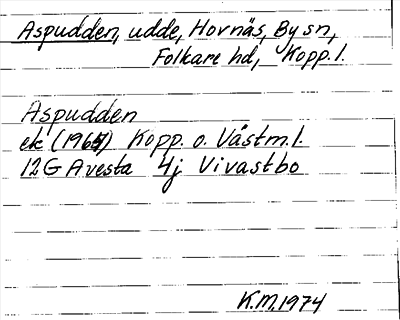 Aspudden, udde, Hovnäs, By sn,
Folkare hd, Kopp. l.
Aspudden
ek (1965) Kopp. o. Västm. l.
12G Avesta 4j Vivastbo
K.M. 1974